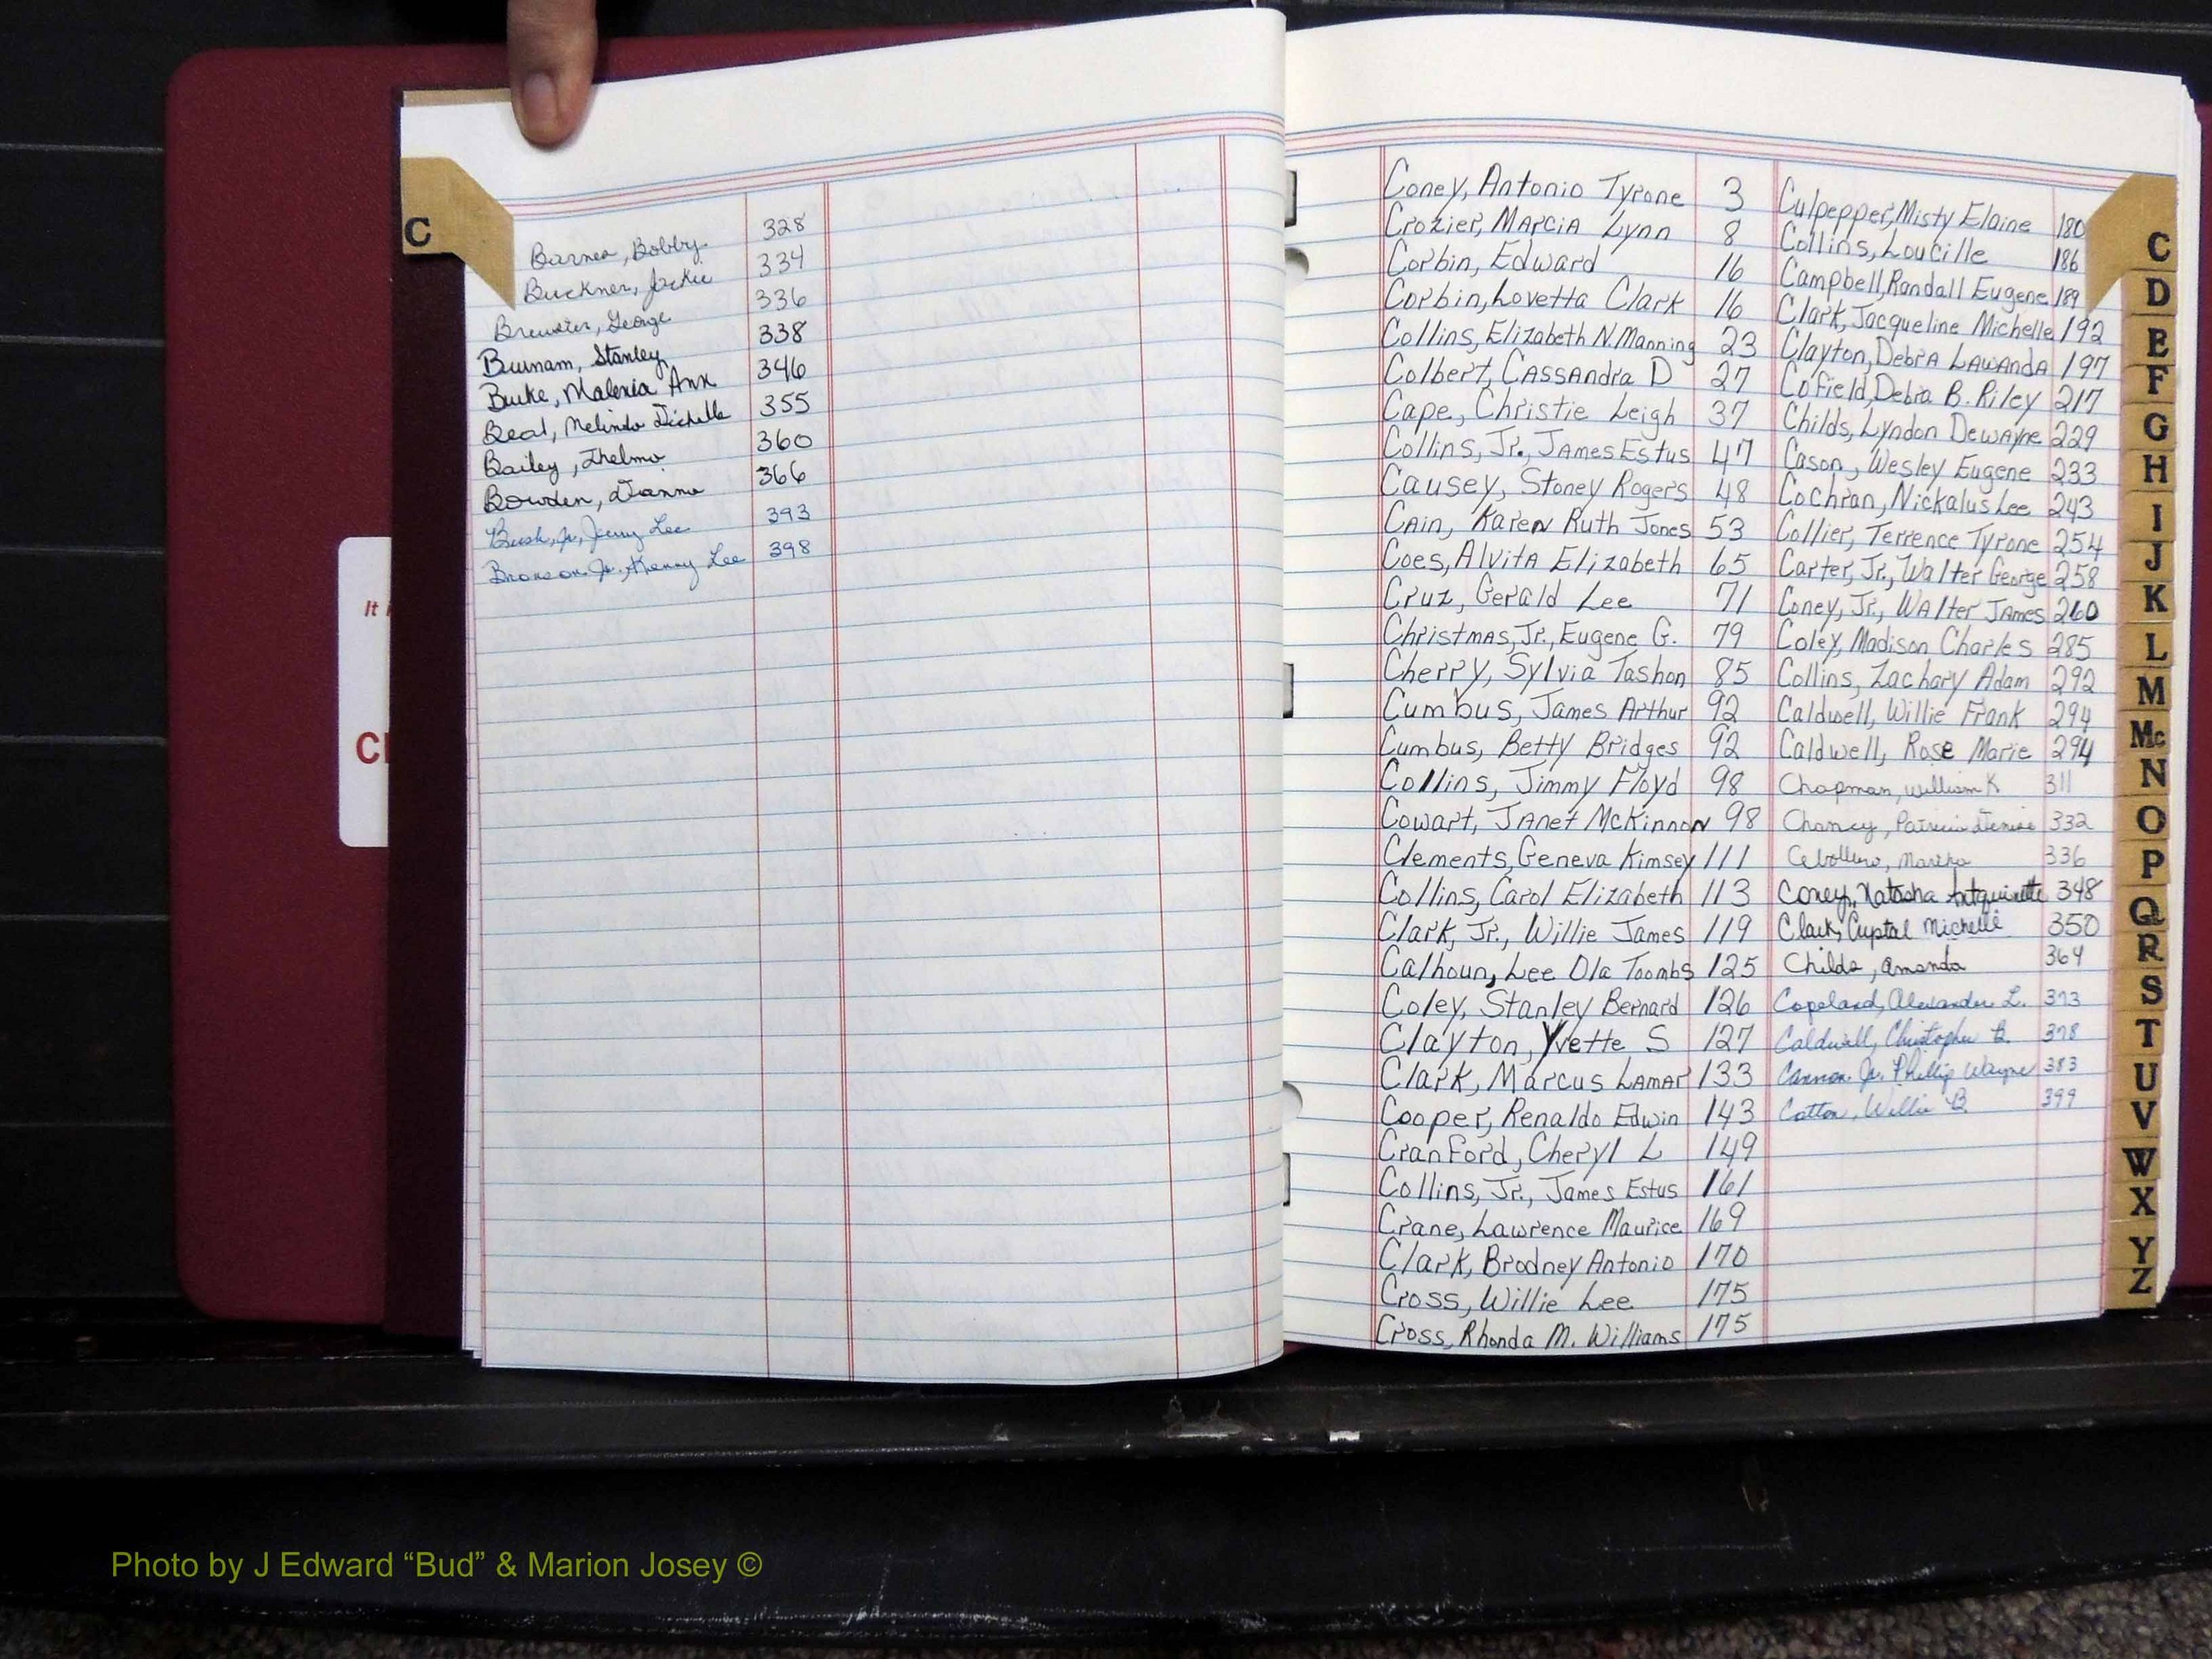 C
Barnes, Bobby 328
Buckner, Jackie 334
Brewster, George 336
Burnam, Stanley 338
Burke, Malexia Ann 346
Beal, Melinda Michelle 355
Bailey, Thelma 360
Bowden, Dianna 366
Bush, Jr., Jerry Lee 393
Bronson, Jr., Kenny Lee 398
It i
Cl
Coney, Antonio Tyrone 3
Crozier, Marcia Lynn 8
Corbin, Edward 16
Corbin, Lovetta Clark 16
Collins, Elizabeth N. Manning 23
Colbert, Cassandra D 27
Cape, Christie Leigh 37
Collins, Jr., James Estus 47
Causey, Stoney Rogers 48
Cain, Karen Ruth Jones 53
Coes, Alvita Elizabeth 65
Cruz, Gerald Lee 71
Christmas, Jr., Eugene G. 79
Cherry, Sylvia Tashon 85
Cumbus, James Arthur 92
Cumbus, Betty Bridges 92
Collins, Jimmy Floyd 98
Cowart, Janet McKinnon 98
Clements, Geneva Kimsey 111
Collins, Carol Elizabeth 113
Clark, Jr., Willie James 119
Calhoun, Lee Ola Toombs 125
Coley, Stanley Bernard 126
Clayton, Yvette S 127
Clark, Marcus Lamar 133
Cooper, Renaldo Edwin 143
Cranford, Cheryl L 149
Collins, Jr., James Estus 161
Crane, Lawrence Maurice 169
Clark, Brodney Antonio 170
Cross, Willie Lee 175
Cross, Rhonda M. Williams 175
Culpepper, Misty Elaine 180
Collins, Loucille 186
Campbell, Randall Eugene 189
Clark, Jacqueline Michelle 192
Clayton, Debra Lawanda 197
Cofield, Debra B. Riley 217
Childs, Lyndon Dewayne 229
Cason, Wesley Eugene 233
Cochran, Nickalus Lee 243
Collier, Terrence Tyrone 254
Carter, Jr., Walter George 258
Coney, Jr., Walter James 260
Coley, Madison Charles 285
Collins, Zachary Adam 292
Caldwell, Willie Frank 294
Caldwell, Rose Marie 294
Chapman, William K 311
Chancy, Patricia Denise 332
Martha 336
Coney, Natasha 348
Clark, Crystal Michelle 350
Childs, Amanda 364
Copeland, Alexander L. 373
Caldwell, Christopher B. 378
Cannon, Jr. Phillip Wayne 383
Cotton, Willie B. 399
C
D
E
F
G
H
I
J
K
L
M
Mc
N
O
P
Q
R
S
T
U
V
W
X
Y
Z
Photo by J Edward “Bud” & Marion Josey ©